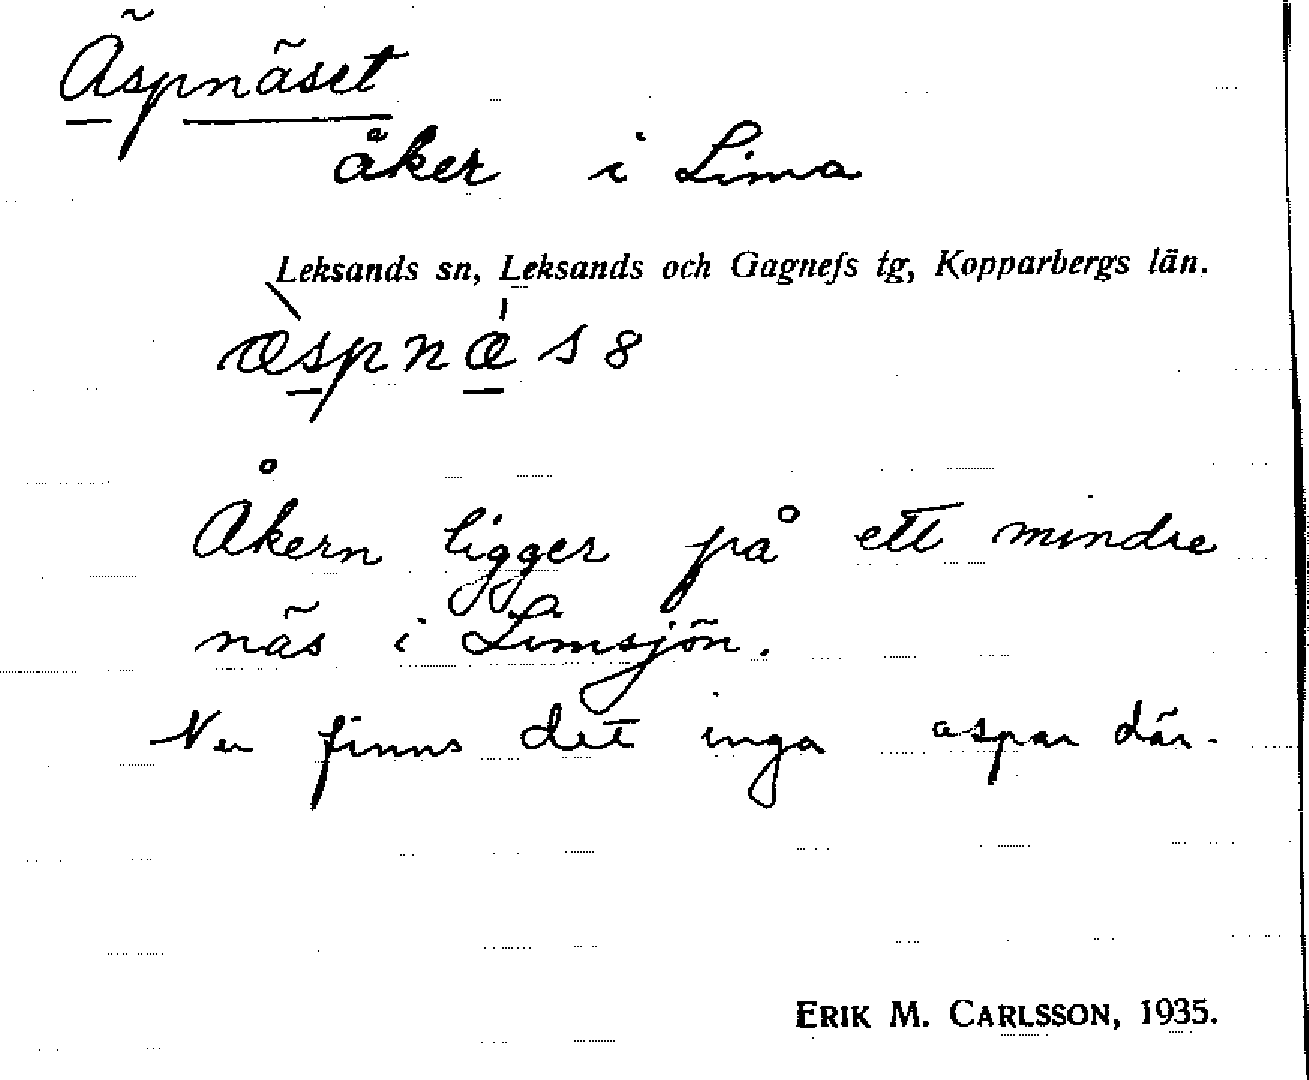 Äspnäset
åker i Lima
Leksands sn, Leksands och Gagnefs tg, Kopparbergs län.
æ̀spnǽs8
Åkern ligger på ett mindre
näs i Limsjön.
Nu finns det inga aspar där.
ERIK M. CARLSSON, 1935.